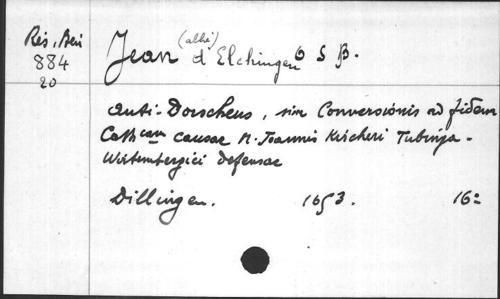 Rés, Ben
884
20
Jean (abbé) d'Elchingen O S B.
Anti-Dorscheus, sive Conversionis ad fidem
Cathcam causae M. Joannis Kircheri Tubinga-
Wirtembergici defensae
Dillingen. 1653. 16º